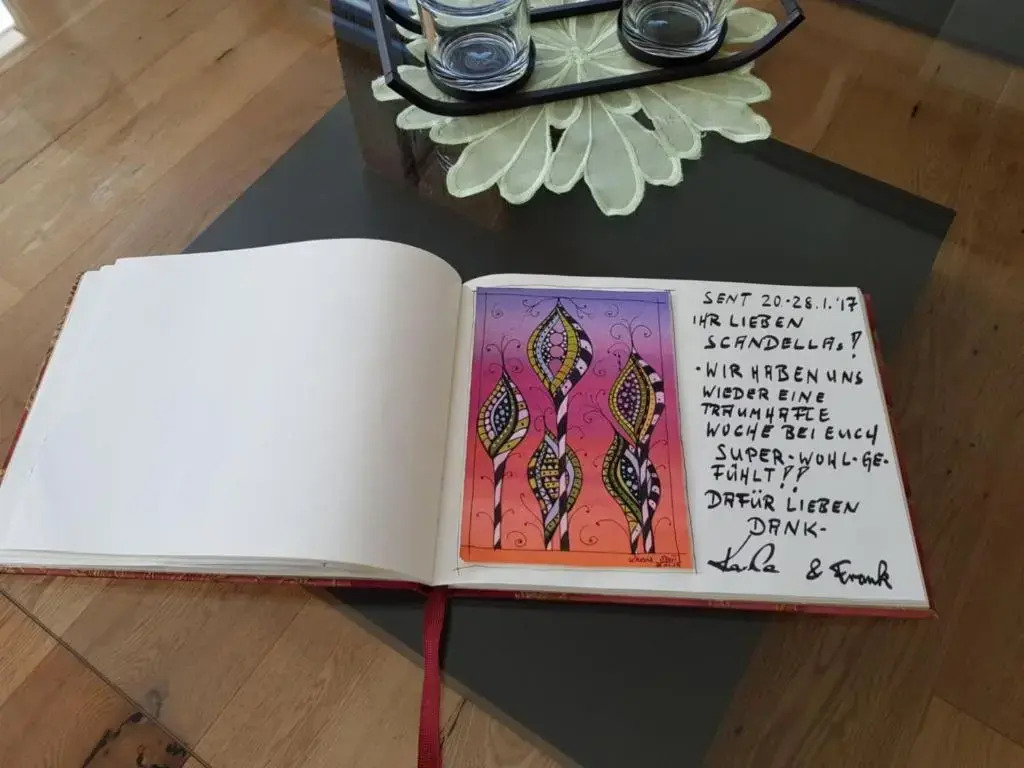 SENT 20.-28.1.'17
IHR LIEBEN
SCANDELLAS!
·WIR HABEN UNS
WIEDER EINE
TRAUMHAFTE
WOCHE BEI EUCH
SUPER-WOHL-GE-
FÜHLT!!
DAFÜR LIEBEN
DANK-
& Frank